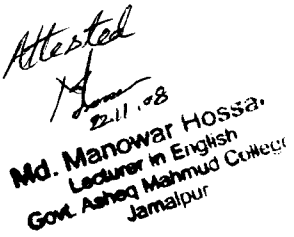 Attested
22.11.08
Md. Manowar Hossa
Lecturer in English
Govt. Asheq Mahmud College
Jamalpur